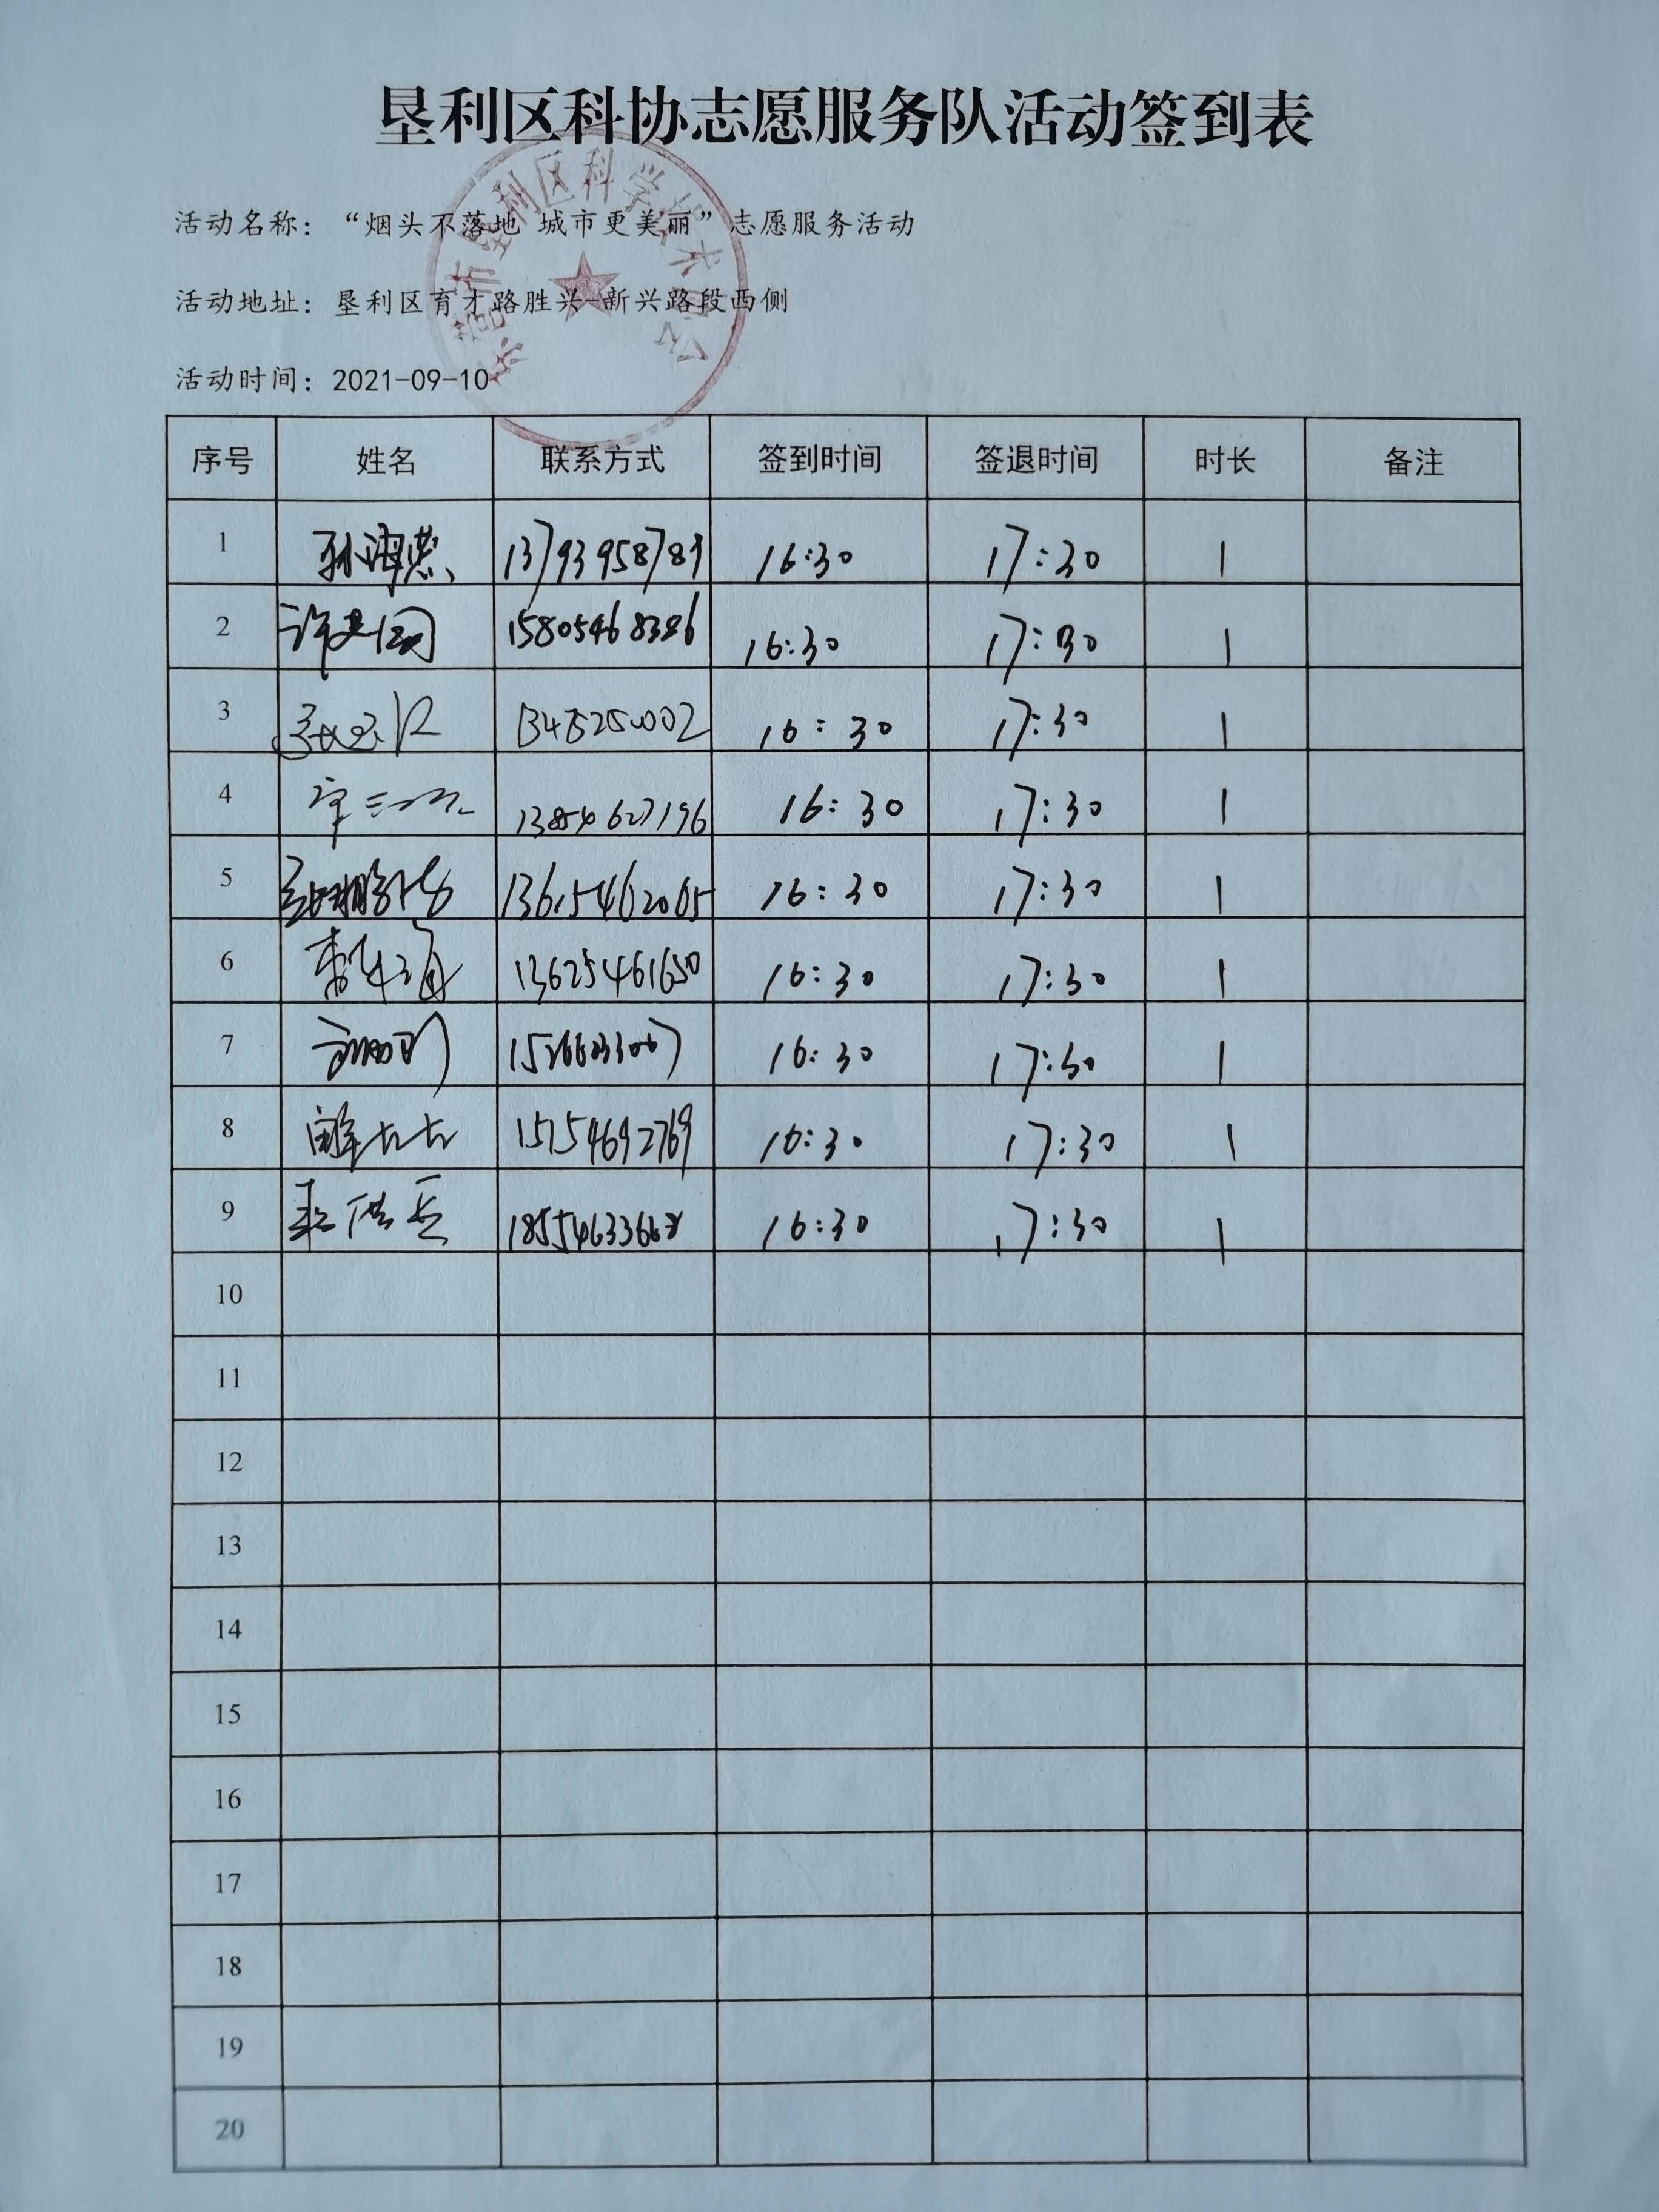 垦利区科协志愿服务队活动签到表
活动名称：“烟头不落地 城市更美丽”志愿服务活动
活动地址：垦利区育才路胜兴-新兴路段西侧
活动时间：2021-09-10
东营市垦利区科学技术协会
序号 姓名 联系方式 签到时间 签退时间 时长 备注
1 13793958789 16:30 17:30 1
2 许建国 16:30 17:30 1
3 16:30 17:30 1
4 13854627196 16:30 17:30 1
5 13615462065 16:30 17:30 1
6 13625461650 16:30 17:30 1
7 16:30 17:30 1
8 15154692769 16:30 17:30 1
9 16:30 17:30 1
10
11
12
13
14
15
16
17
18
19
20